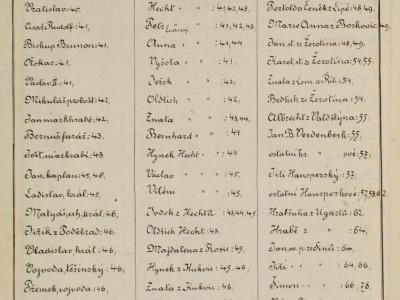 Vratislav: 40,
Císař Rudolf: 41,
Biskup Brunon: 41,
Otokar: 41,
Václav II: 41,
Mikuláš probošt: 42,
Jan markhrabě: 42,
Bernuš farář: 43,
Jošt markrabí: 43
Jan, kaplan: 43, 46,
Ladislav, král: 45,
Matyáš, uh. král: 46,
Jiřík z Poděbrad: 46,
Vladislav, král: 46,
Vojvoda těšínský: 46,
Přemek, vojvoda: 46,
Hecht " " : 41, 42, 43,
Petr " : 41, 42, 43,
Anna " " : 41, 44
Vyšota " " : 41,
Ješek " " : 42,
Oldřich " " : 42,
Znata " " : 43, 44,
Bernhard " " : 44
Hynek Hecht " " : 44
Václav " " : 45,
Vilém " " : 45,
Jodok z Hechtů : 43, 44, 45,
Oldřich Hecht: 43,
Majdalena z Rosic: 45,
Hynek z Kukvic: 45, 46,
Znata z Kukvic: 46,
Pertold a Čeněk z Lipé: 48, 49,
Marie Anna z Boskovic: 49,
Jan st. ze Žerotína: 48, 49,
Karel st. ze Žerotína: 54, 55,
Znata z Lom. a Rit.: 54,
Bedřich ze Žerotína: 54,
Albrecht z Valdštýna: 55,
Jan B. Verdenberk: 55,
ostatní hr. " ové: 57,
Jiří Hausperský: 57,
ostatní Hausperkové: 57, 58, 62
Hraběnka z Ugartů: 62,
Hrabě z " : 64,
Jan sv. p. ze Sinů: 64,
Jiří " " : 64, 66,
Šimon " " : 66, 78,